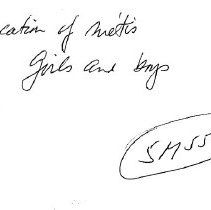 cation of métis
Girls and boys
SMSS